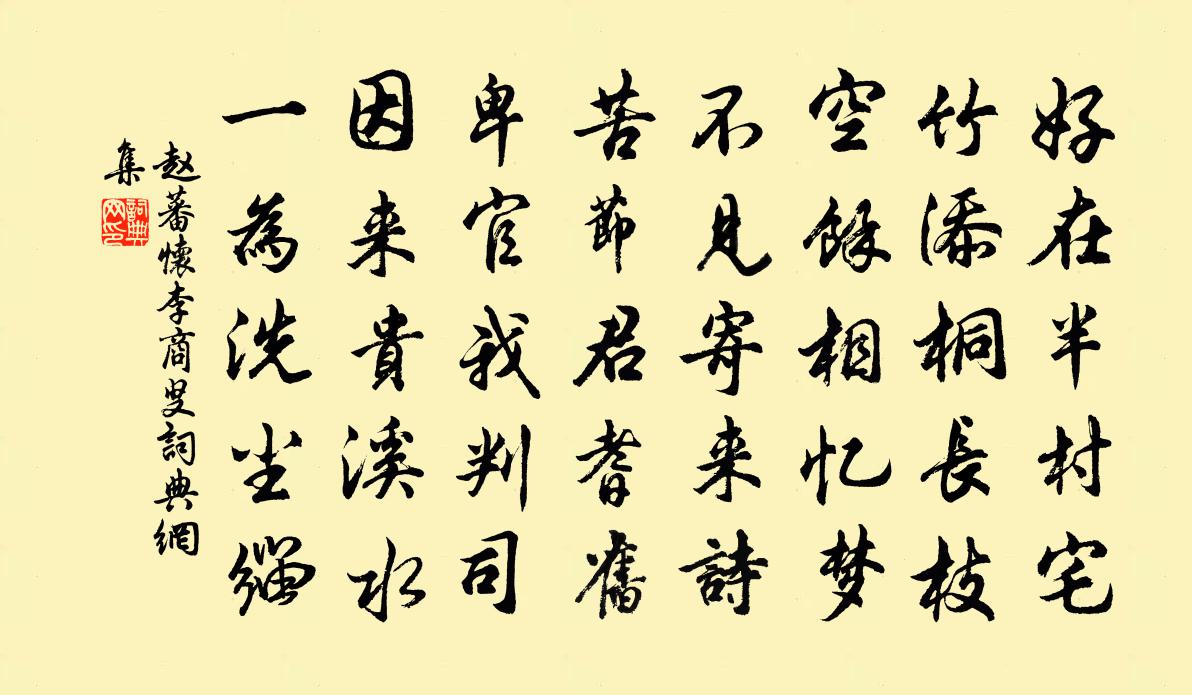 好在半村宅
竹添桐長枝
空餘相忆梦
不見寄来詩
苦節君耆舊
卑官我判司
因来貴溪水
一為洗尘缁
赵蕃懷李商叟詞典網
集
詞典
网印